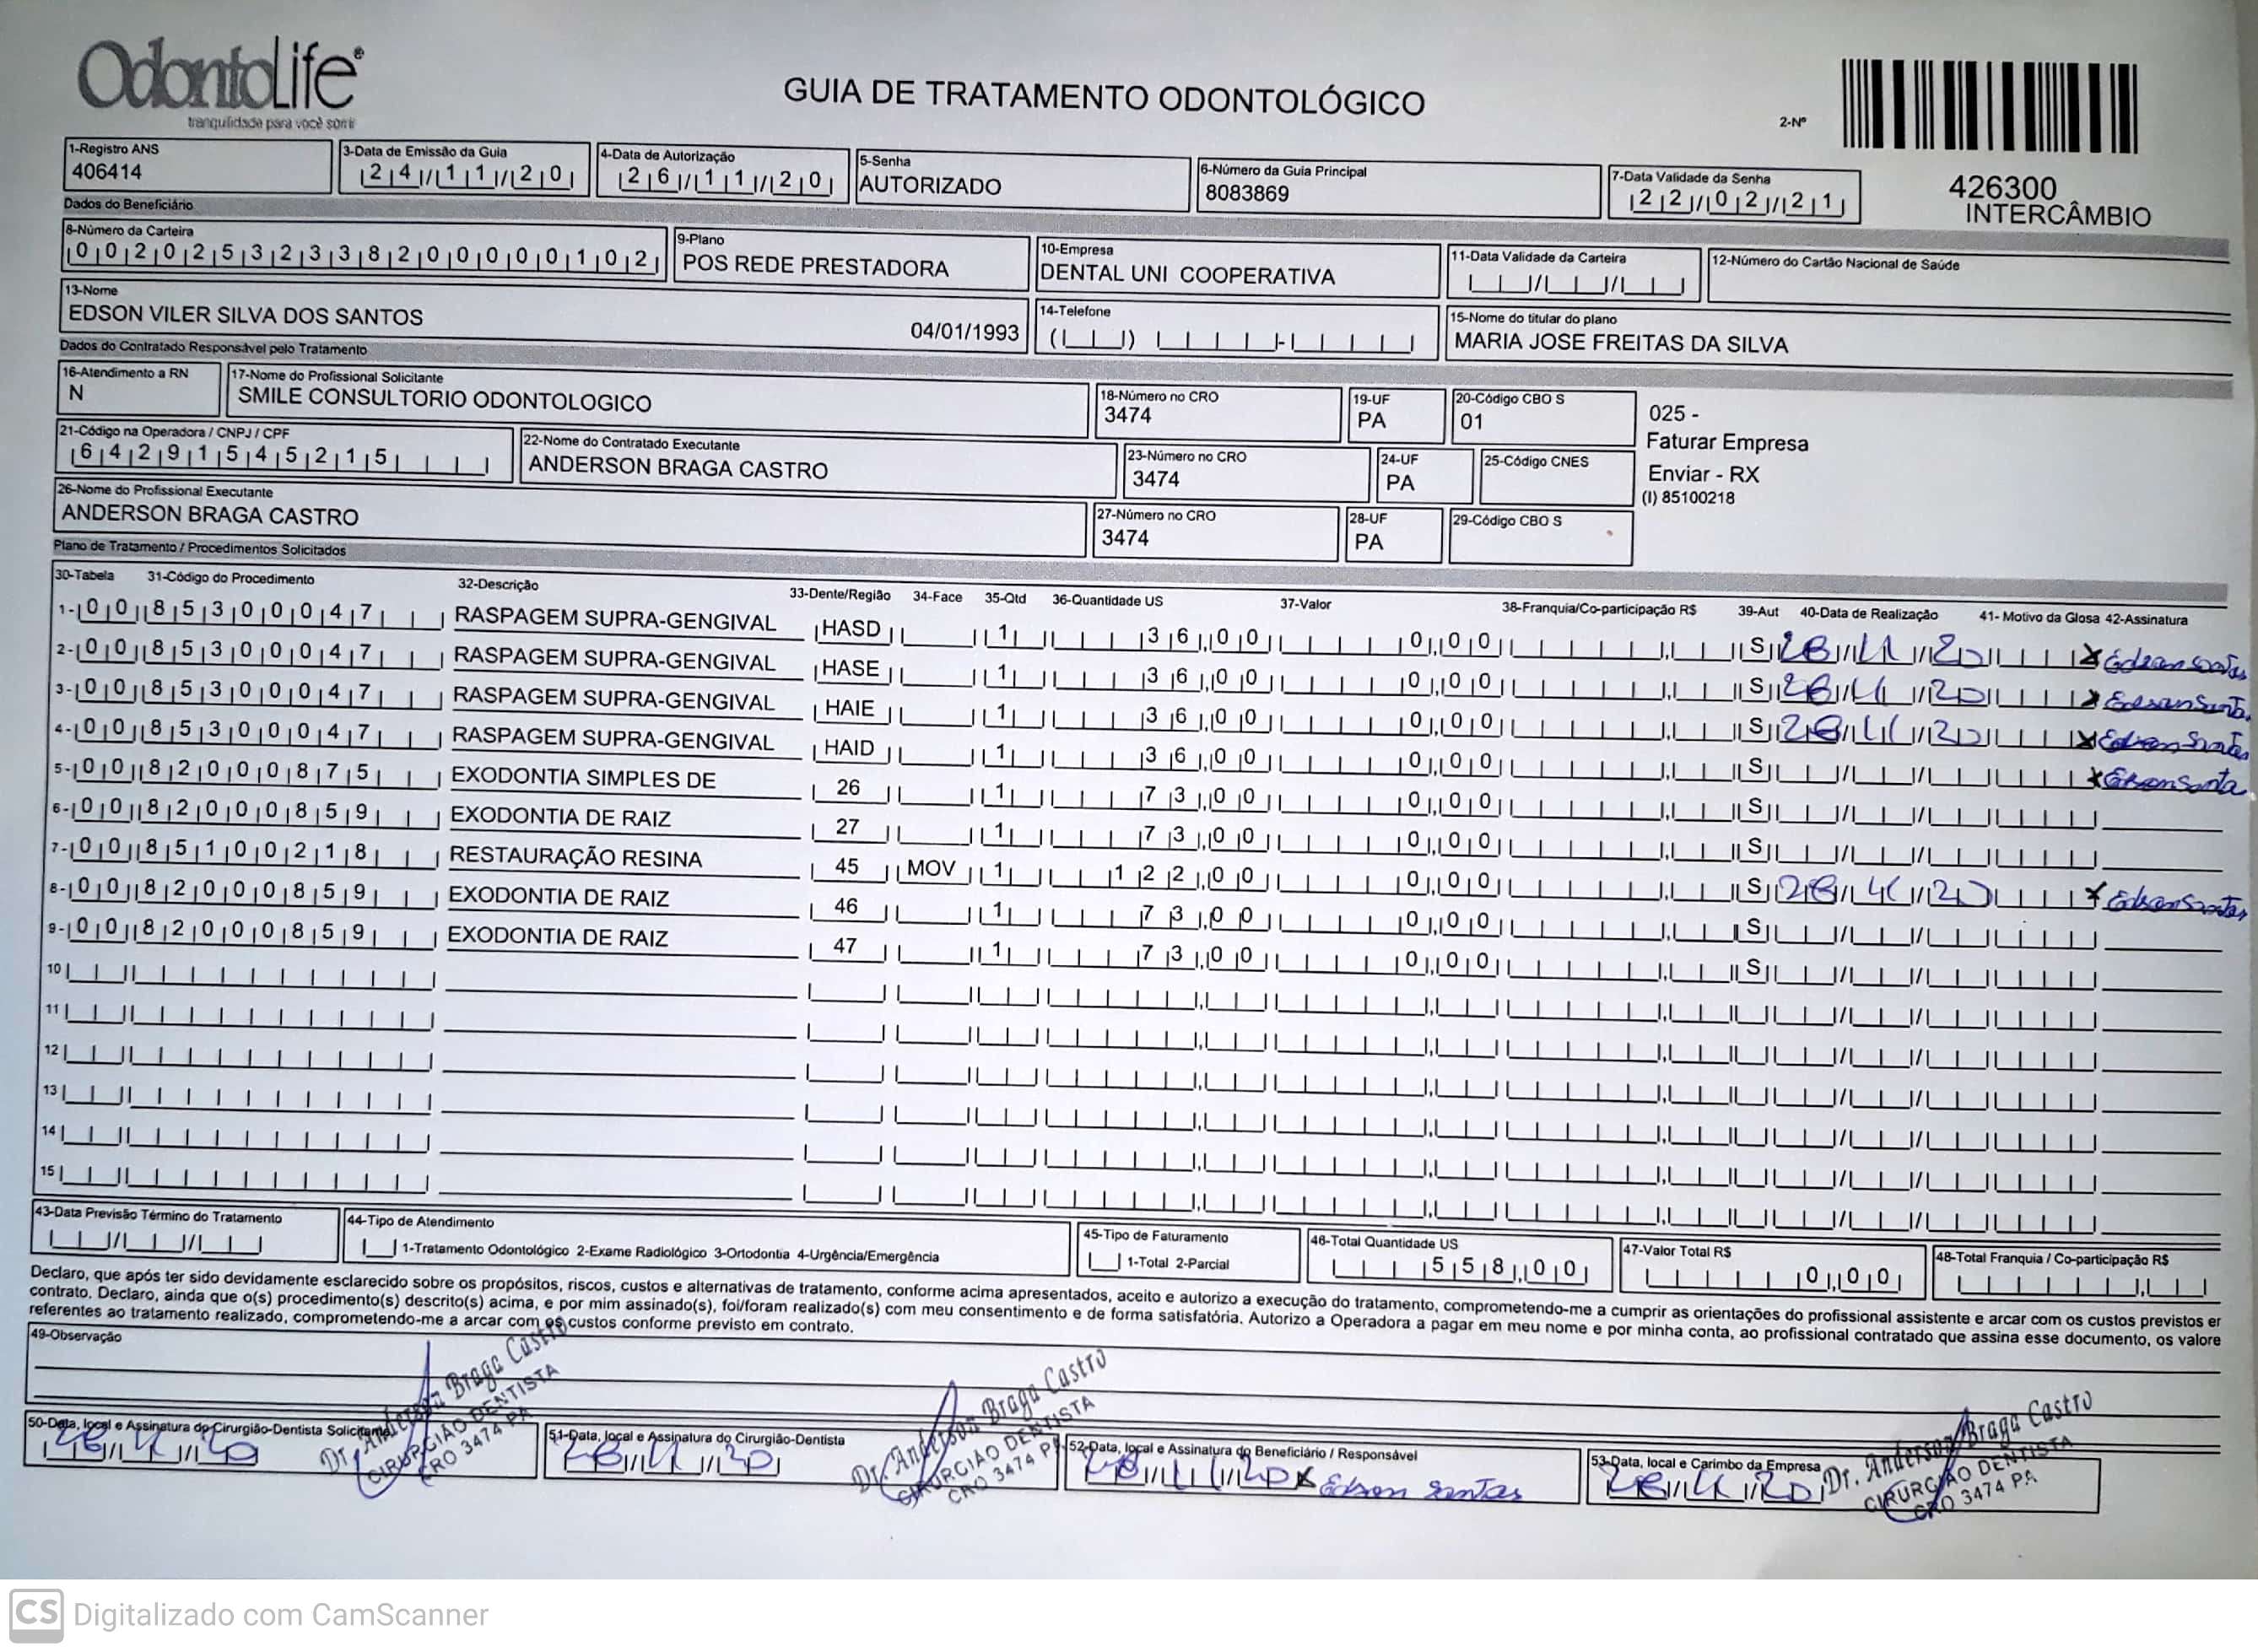 OdontoLife®
tranquilidade para você sorrir
GUIA DE TRATAMENTO ODONTOLÓGICO
2-Nº
426300
INTERCÂMBIO
1-Registro ANS
406414
3-Data de Emissão da Guia
24/11/20
4-Data de Autorização
26/11/20
5-Senha
AUTORIZADO
6-Número da Guia Principal
8083869
7-Data Validade da Senha
22/02/21
Dados do Beneficiário
8-Número da Carteira
00202532338200000102
9-Plano
POS REDE PRESTADORA
10-Empresa
DENTAL UNI COOPERATIVA
11-Data Validade da Carteira
12-Número do Cartão Nacional de Saúde
13-Nome
EDSON VILER SILVA DOS SANTOS 04/01/1993
14-Telefone
15-Nome do titular do plano
MARIA JOSE FREITAS DA SILVA
Dados do Contratado Responsável pelo Tratamento
16-Atendimento a RN
N
17-Nome do Profissional Solicitante
SMILE CONSULTORIO ODONTOLOGICO
18-Número no CRO
3474
19-UF
PA
20-Código CBO S
01
025 -
Faturar Empresa
Enviar - RX
(I) 85100218
21-Código na Operadora / CNPJ / CPF
64291545215
22-Nome do Contratado Executante
ANDERSON BRAGA CASTRO
23-Número no CRO
3474
24-UF
PA
25-Código CNES
26-Nome do Profissional Executante
ANDERSON BRAGA CASTRO
27-Número no CRO
3474
28-UF
PA
29-Código CBO S
Plano de Tratamento / Procedimentos Solicitados
30-Tabela 31-Código do Procedimento 32-Descrição 33-Dente/Região 34-Face 35-Qtd 36-Quantidade US 37-Valor 38-Franquia/Co-participação R$ 39-Aut 40-Data de Realização 41- Motivo da Glosa 42-Assinatura
1- 00 85300047 RASPAGEM SUPRA-GENGIVAL HASD 1 36,00 0,00 S 28/11/20 x Edson Santos
2- 00 85300047 RASPAGEM SUPRA-GENGIVAL HASE 1 36,00 0,00 S 28/11/20 x Edson Santos
3- 00 85300047 RASPAGEM SUPRA-GENGIVAL HAIE 1 36,00 0,00 S 28/11/20 x Edson Santos
4- 00 85300047 RASPAGEM SUPRA-GENGIVAL HAID 1 36,00 0,00 S x Edson Santos
5- 00 82000875 EXODONTIA SIMPLES DE 26 1 73,00 0,00 S
6- 00 82000859 EXODONTIA DE RAIZ 27 1 73,00 0,00 S
7- 00 85100218 RESTAURAÇÃO RESINA 45 MOV 1 122,00 0,00 S 28/11/20 x Edson Santos
8- 00 82000859 EXODONTIA DE RAIZ 46 1 73,00 0,00 S
9- 00 82000859 EXODONTIA DE RAIZ 47 1 73,00 0,00 S
10
11
12
13
14
15
43-Data Previsão Término do Tratamento
44-Tipo de Atendimento
1-Tratamento Odontológico 2-Exame Radiológico 3-Ortodontia 4-Urgência/Emergência
45-Tipo de Faturamento
1-Total 2-Parcial
46-Total Quantidade US
558,00
47-Valor Total R$
0,00
48-Total Franquia / Co-participação R$
Declaro, que após ter sido devidamente esclarecido sobre os propósitos, riscos, custos e alternativas de tratamento, conforme acima apresentados, aceito e autorizo a execução do tratamento, comprometendo-me a cumprir as orientações do profissional assistente e arcar com os custos previstos er
contrato. Declaro, ainda que o(s) procedimento(s) descrito(s) acima, e por mim assinado(s), foi/foram realizado(s) com meu consentimento e de forma satisfatória. Autorizo a Operadora a pagar em meu nome e por minha conta, ao profissional contratado que assina esse documento, os valore
referentes ao tratamento realizado, comprometendo-me a arcar com os custos conforme previsto em contrato.
49-Observação
50-Data, local e Assinatura do Cirurgião-Dentista Solicitante
28/11/20
Dr. Anderson Braga Castro
CIRURGIÃO DENTISTA
CRO 3474 PA
51-Data, local e Assinatura do Cirurgião-Dentista
28/11/20
Dr. Anderson Braga Castro
CIRURGIÃO DENTISTA
CRO 3474 PA
52-Data, local e Assinatura do Beneficiário / Responsável
28/11/20 x Edson Santos
53-Data, local e Carimbo da Empresa
28/11/20
Dr. Anderson Braga Castro
CIRURGIÃO DENTISTA
CRO 3474 PA
CS Digitalizado com CamScanner